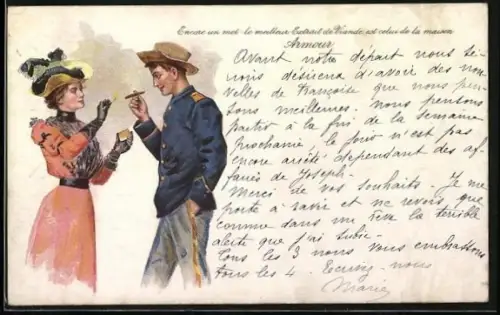 Encore un mot - le meilleur Extrait de Viande, est celui de la maison
Armour.
Avant notre départ nous se-
rions désireux d'avoir des nou-
velles de Françoise que nous pen-
sons meilleures. Nous pensons
partir à la fin de la semaine
prochaine, le jour n'est pas
encore arrêté dépendant des af-
faires de Joseph.
Merci de vos souhaits. Je me
porte à ravir et ne revois que
comme dans un rêve la terrible
alerte que j'ai subie.
Tous les 3 nous vous embrassons
tous les 4. Ecrivez-nous
Marie